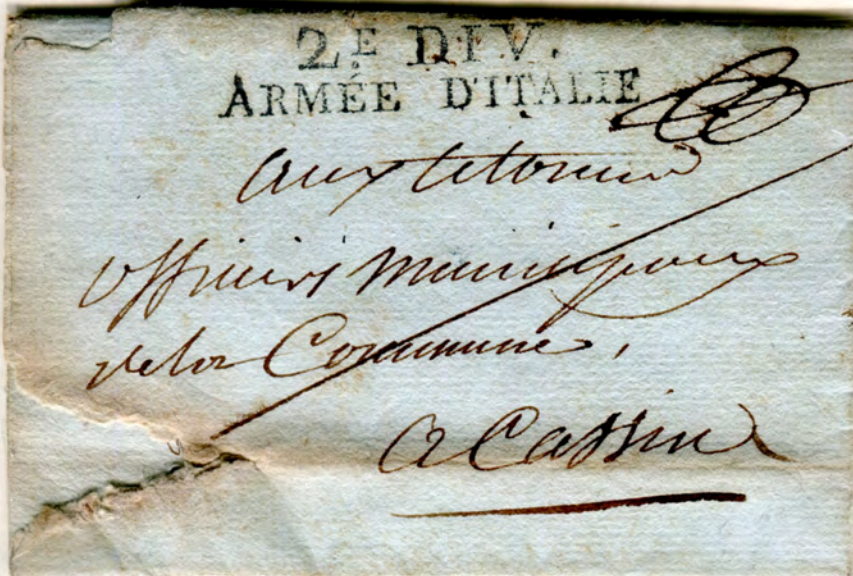 2.E DIV.
ARMÉE D'ITALIE
Aux Citoiens
officiers municipaux
de la Commune,
a Cassine